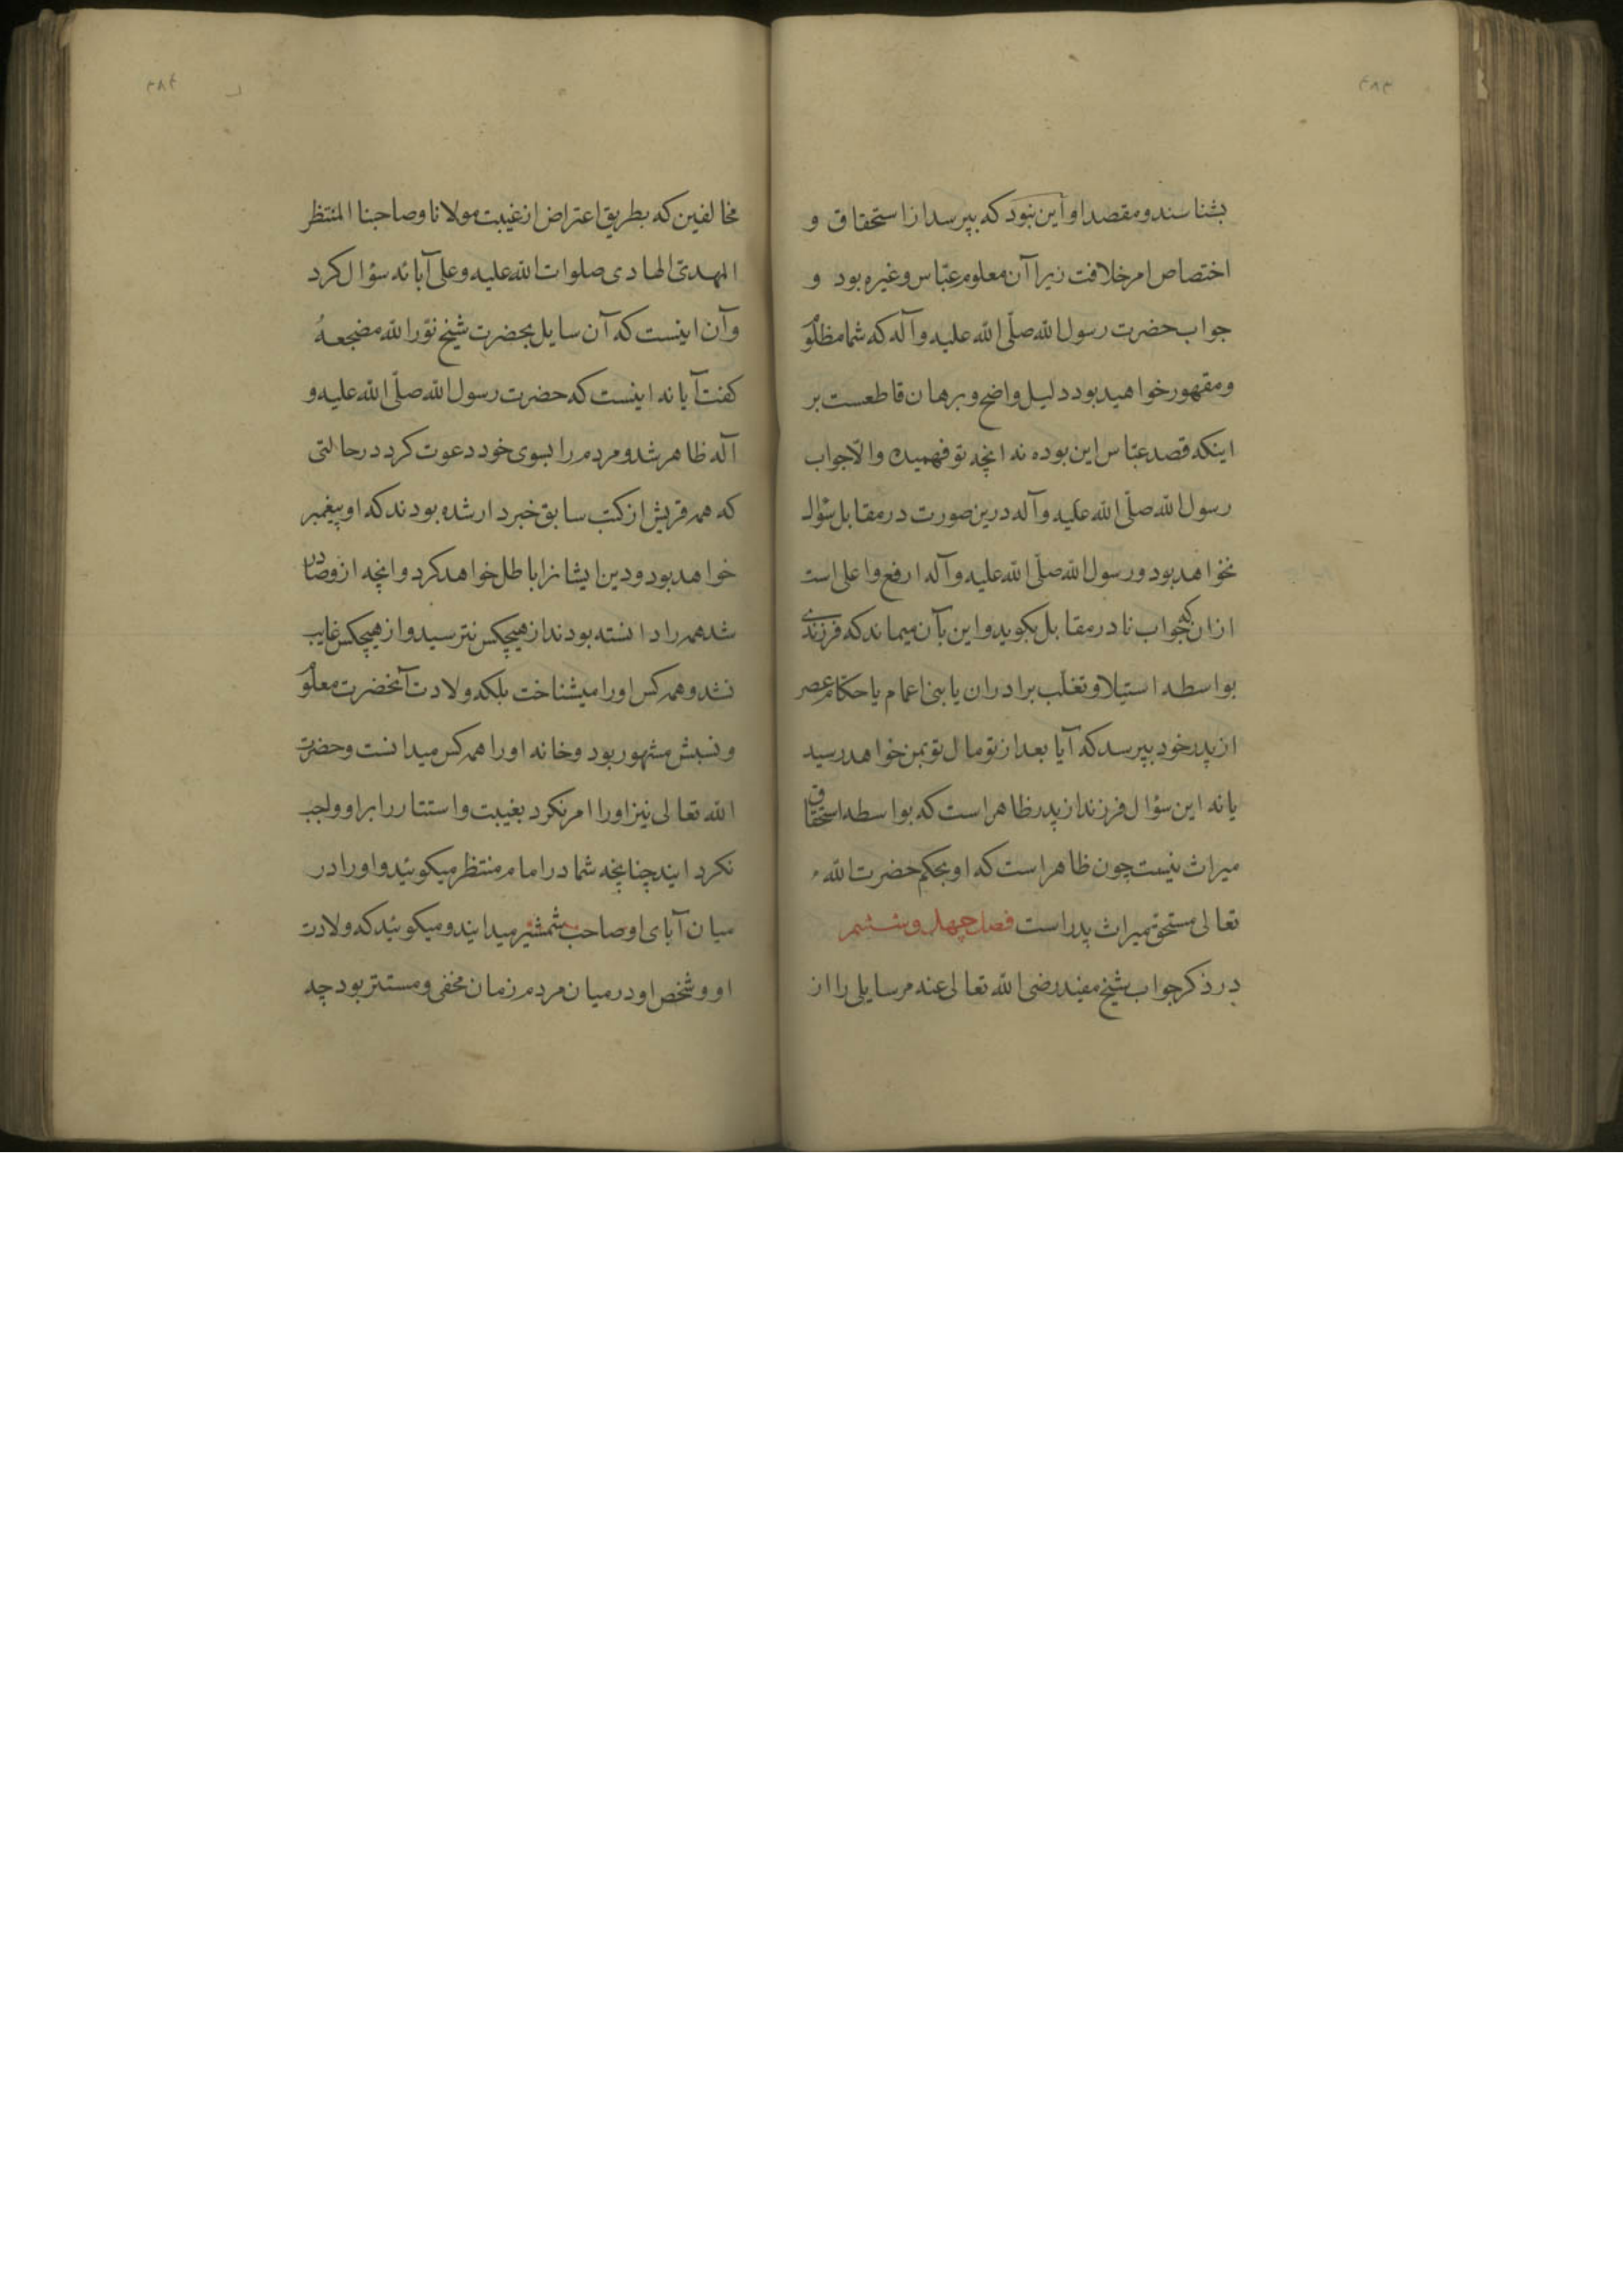 ۳۸۳
بشناسند و مقصد او این نبود که بپرسد از استحقاق و
اختصاص امر خلافت زیرا آن معلوم عبّاس و غیره بود و
جواب حضرت رسول الله صلّی الله علیه و آله که شما مظلوم
و مقهور خواهید بود دلیل واضح و برهان قاطعست بر
اینکه قصد عبّاس این بوده نه انچه تو فهمیده والّا جواب
رسول الله صلّی الله علیه و آله درین صورت در مقابل سؤال
نخواهد بود و رسول الله صلّی الله علیه و آله ارفع و اعلی است
ازان که جواب نا در مقابل بکوید و این بآن میماند که فرزندی
بواسطه استیلا و تغلّب برادران یا بنی اعمام یا حکام عصر
از پدر خود بپرسد که آیا بعد از تو مال تو بمن خواهد رسید
یا نه این سؤال فرزند از پدر ظاهر است که بواسطه استحقاق
میراث نیست چون ظاهر است که او بحکم حضرت الله
تعالی مستحق میراث پدر است فصل چهل و ششم
در ذکر جواب شیخ مفید رضی الله تعالی عنه مر سایلی را از
۳۸۴
مخالفین که بطریق اعتراض از غیبت مولانا و صاحبنا المنتظر
المهدیّ الهادی صلوات الله علیه و علی آبائه سؤال کرد
و آن اینست که آن سایل بحضرت شیخ نوّر الله مضجعهُ
کفت آیا نه اینست که حضرت رسول الله صلّی الله علیه و
آله ظاهر شد و مردم را بسوی خود دعوت کرد در حالتی
که همه قریش از کتب سابق خبردار شده بودند که او پیغمبر
خواهد بود و دین ایشانرا باطل خواهد کرد و انچه ازو صادر
شد همه را دانسته بودند از هیچکس نترسید و از هیچکس غایب
نشد و همه کس او را میشناخت بلکه ولادت آنحضرت معلوم
و نسبش مشهور بود و خانه او را همه کس میدانست و حضرت
الله تعالی نیز او را امر نکرد بغیبت و استتار را بر او واجب
نکردانید چنانچه شما در امام منتظر میکوئید و او را در
میان آبای او صاحب شمشیر میدانید و میکوئید که ولادت
او و شخص او در میان مردم زمان مخفی و مستتر بود چه